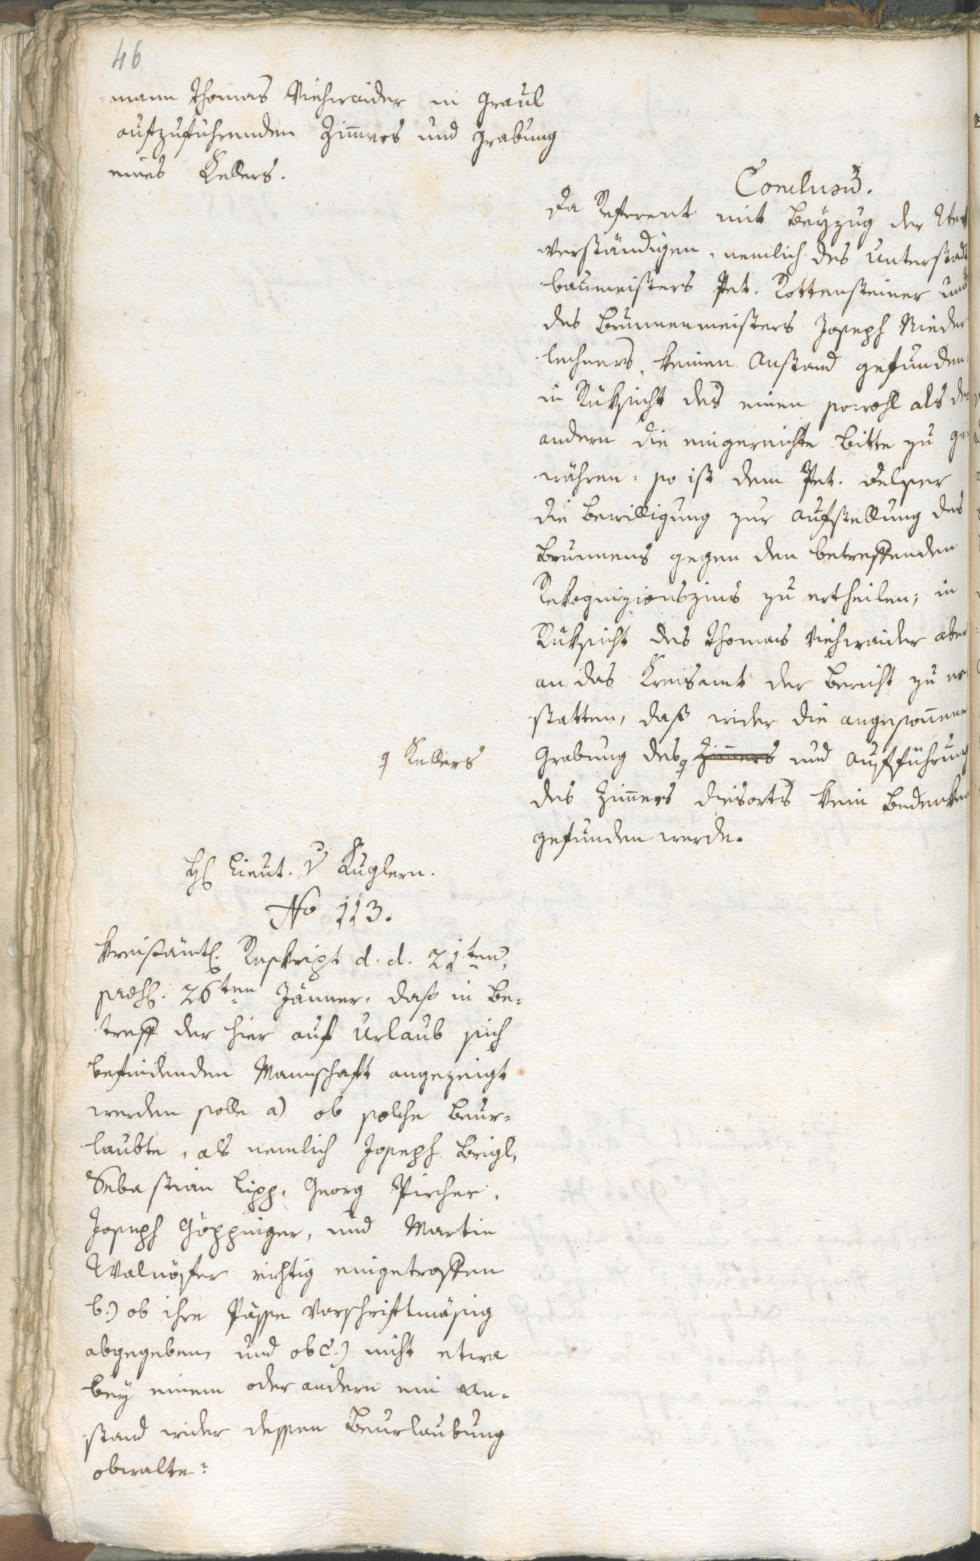 46
mann Thomas Viehwaider in Graul
aufzuführenden Zim̄ers und Grabung
eines Kellers.
Conclusū.
Da Referent mit Beyzug der
verständigen, nemlich des Unterstadt
baumeisters Pet. Rottensteiner und
des Brunnenmeisters Joseph Nieder
lechners, keinen Anstand gefunden
in Rüksicht des einen sowohl als des
andern die eingereichte Bitte zu ge=
währen: so ist dem Pet. Delser
die Bewilligung zur Aufstellung des
Brunnens gegen den betreffenden
Rekognizionszins zu ertheilen; in
Rüksicht des Thomas Viehwaider aber
an das Kreisamt der Bericht zu er
statten, daß wider die angesonnene
Grabung des Zim̄ers und Aufführung
des Zim̄ers diesorts kein Bedenken
gefunden werde.
Kellers
H. Lieut. v Kuglern.
No 113.
Kreisämtl. Reskript d. d. 21ten,
präs. 26ten Jänner, daß in Be=
treff der hier auf Urlaub sich
befindenden Mannschaft angezeigt
werden solle a) ob solche Beur=
laubte, als nemlich Joseph Brigl,
Sebastian Lipp, Georg Pircher,
Joseph Göppinger, und Martin
Walnöfer richtig eingetroffen
b.) ob ihre Pässe vorschriftmäsig
abgegeben, und ob c.) nicht etwa
bey einem oder andern ein An=
stand wider dessen Beurlaubung
obwalte?